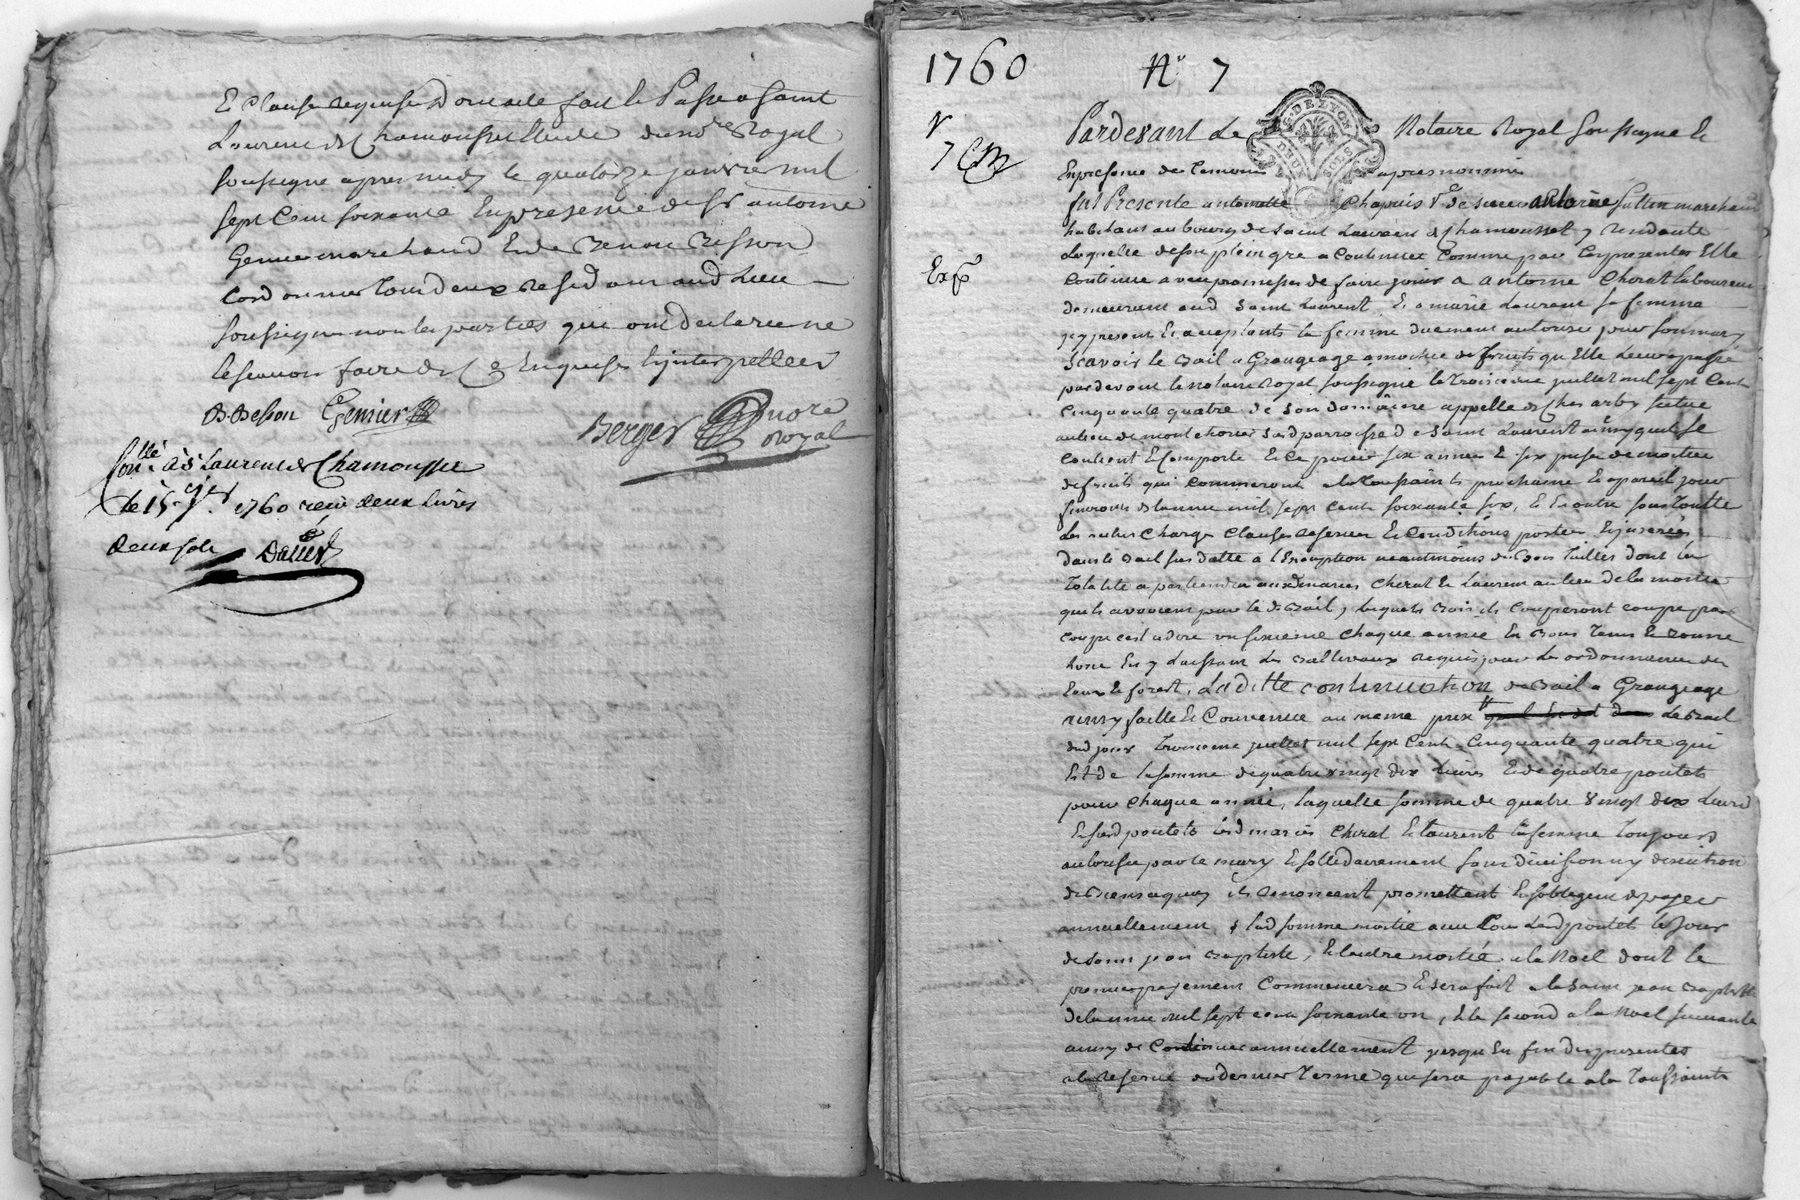 Et Clause requise Dont acte fait et Passé a Saint
Laurent de Chamousset Etude du no.re Royal
soussigné apres midy le quatorze janvier mil
sept Cent soixante En presence de Sr antoine
Genier marchand Et de Benoit Besson
Cordonnier Tout deux Residant aud. Lieu
soussignés non les parties qui ont declaré ne
le scavoir faire de Ce Enquises Et interpellees
B. Besson Genier
Berger no.re Royal
Con.llé à St Laurent de Chamousset
le 15 j.er 1760 reçu deux livres
deux sols
1760 N.o 7
Pardevant Le Notaire Royal soussigné Et
En presence des Temoins apres nommés
fut Presente antoinette Chapuis V.e de sieur antoine marchand
habitant au bourg de Saint Laurent de Chamousset y
Laquelle de son plein gré a Continué Comme par Ces presentes Elle
Continue avec promesse de faire jouir a antoine Chirat laboureur
demeurant aud. Saint Laurent Et a marie Laurent sa femme
icy present Et acceptants la femme duement autorisée par son mary
Scavoir le Bail a Grangeage a moitié de fruits qu'Elle Leur a passé
pardevant le notaire Royal soussigné le Troisieme juillet mil sept Cent
Cinquante quatre de son domaine appellé de situé
au lieu de sus.d parroisse de Saint Laurent ainsy qu'il se
Contient Et Comporte Et Ce pour six années Et six prises de moitié
de fruits qui Commenceront a la Toussaints prochaine Et a pareil jour
finiront de l'année mil sept Cent soixante six, Et En outre sous Toutte
Les autres Charges Clauses Reserves Et Conditions portées Et inserées
dans le Bail sus datté a l'Exception neantmoins des Bois Tailles dont la
Totalité appartiendra auxd. mariés Chirat Et Laurent au lieu de la moitié
qu'ils avoient par le d. Bail, lesquels Bois ils Couperont coupe par
coupe c'est a dire un sixieme Chaque année En Bons Tems Et Bonne
Lune En y Laissant Les Balliveaux requis par Les ordonnances des
Eaux Et forest, La ditte continuation de Bail a Grangeage
ainsy faitte Et Convenue au meme prix Le Bail
dud. jour Troisieme juillet mil sept Cent Cinquante quatre qui
Est de la somme de quatre vingt dix Livres Et de quatre poulets
pour Chaque année, laquelle somme de quatre vingt dix Livres
Et susd. poulets Lesd. mariés Chirat Et Laurent la femme Toujours
autorisée par le mary Et sollidairement sans division ny discution
de Biens auquels ils Renoncent promettent Et s'obligent de payer
annuellement lad. somme moitié avec Tous Lesd. poulets le Jour
de Saint jean Baptiste, Et l'autre moitié a la Noel dont le
premier payement Commencera Et sera fait a la Saint jean Baptiste
de l'année mil sept cent soixante un, Et le second a la Noel suivante
ainsy de Continuer annuellement jusqu'En fin des presentes
a la Reserve du dernier Terme qui sera payable a la Toussaints